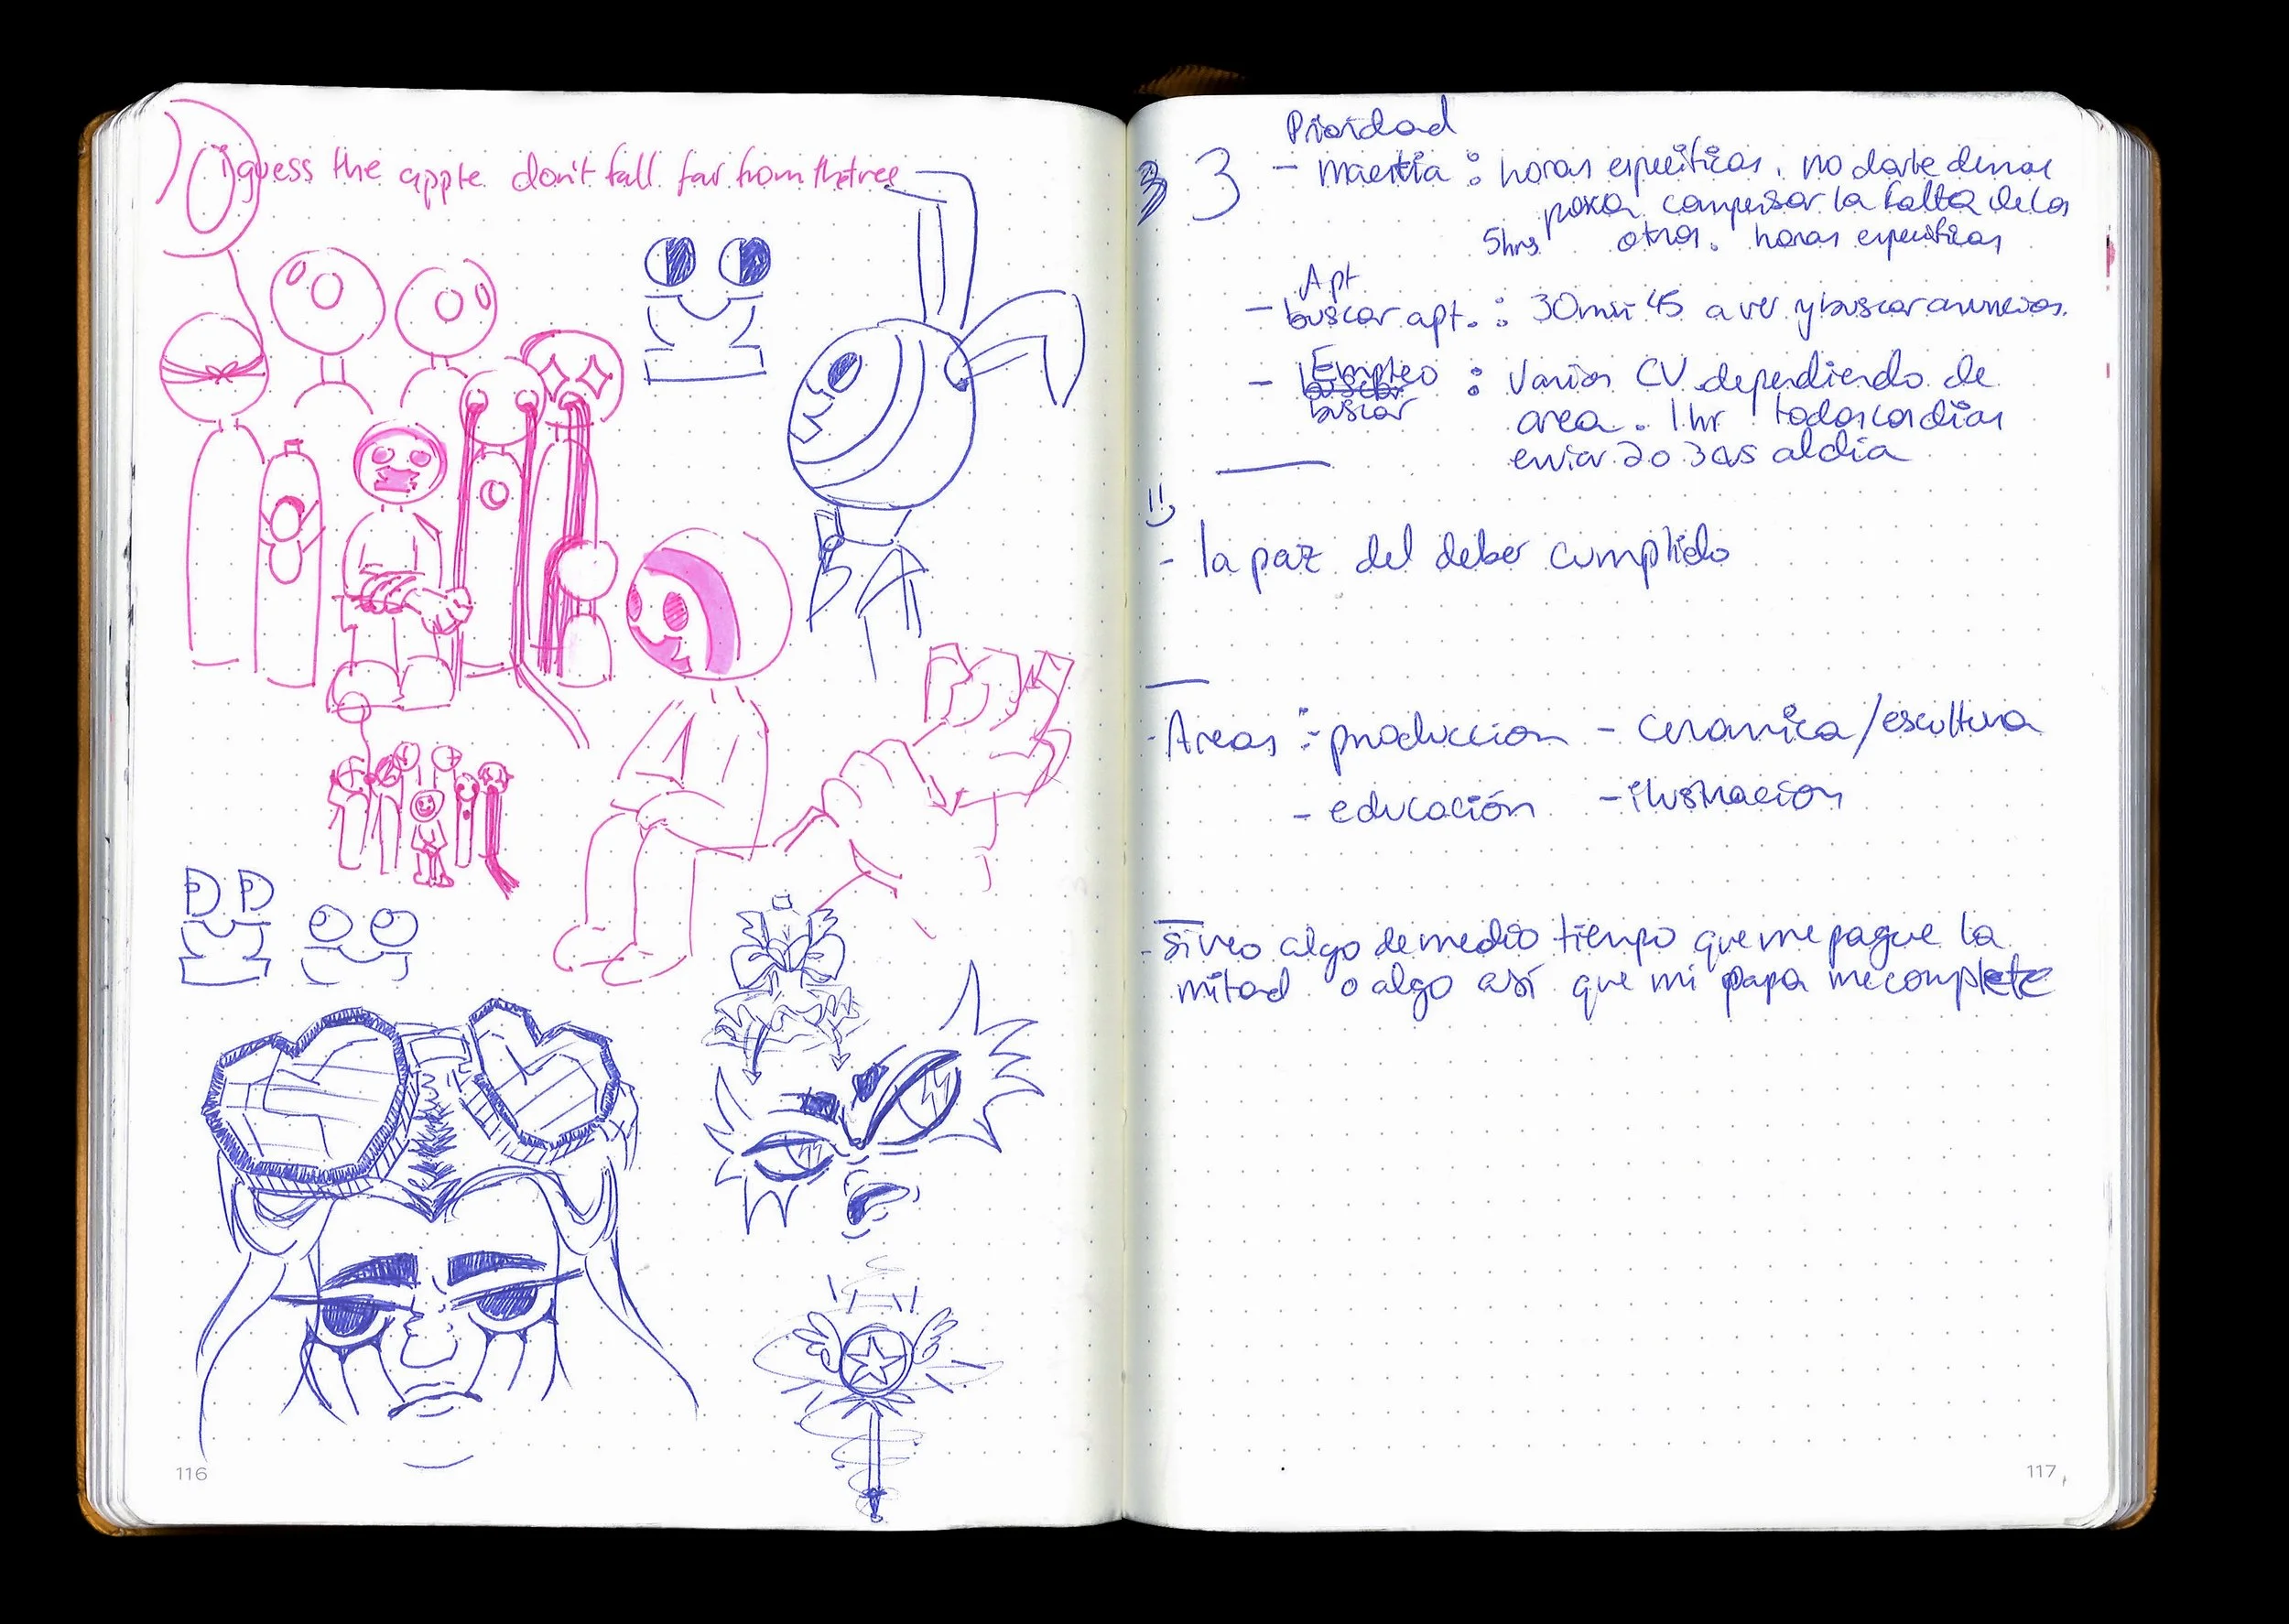 I guess the apple don't fall far from the tree
116
Prioridad
3 3 - maestria : horas especificas, no darle demas
para compensar la falta de los
5hrs otros. horas especificas
Apt
- buscar apt. : 30min 45 a ver y buscar anuncios.
- Empleo : Varios CV dependiendo de
buscar area. 1 hr todos los dias
enviar 2 o 3 as al dia
!!
- la paz del deber cumplido
- Areas : - produccion - ceramica/escultura
- educación - ilustracion
- si veo algo de medio tiempo que me pague la
mitad o algo asi que mi papa me complete
117